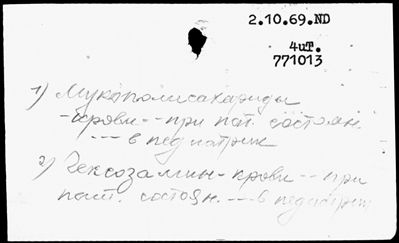 2.10.69.ND
4иТ.
771013
1) Мукополисахариды
-крови -- при пат. состоян.
--- в педиатрии
2) Гексозамин - крови -- при
пат. состоян. --- в педиатрии